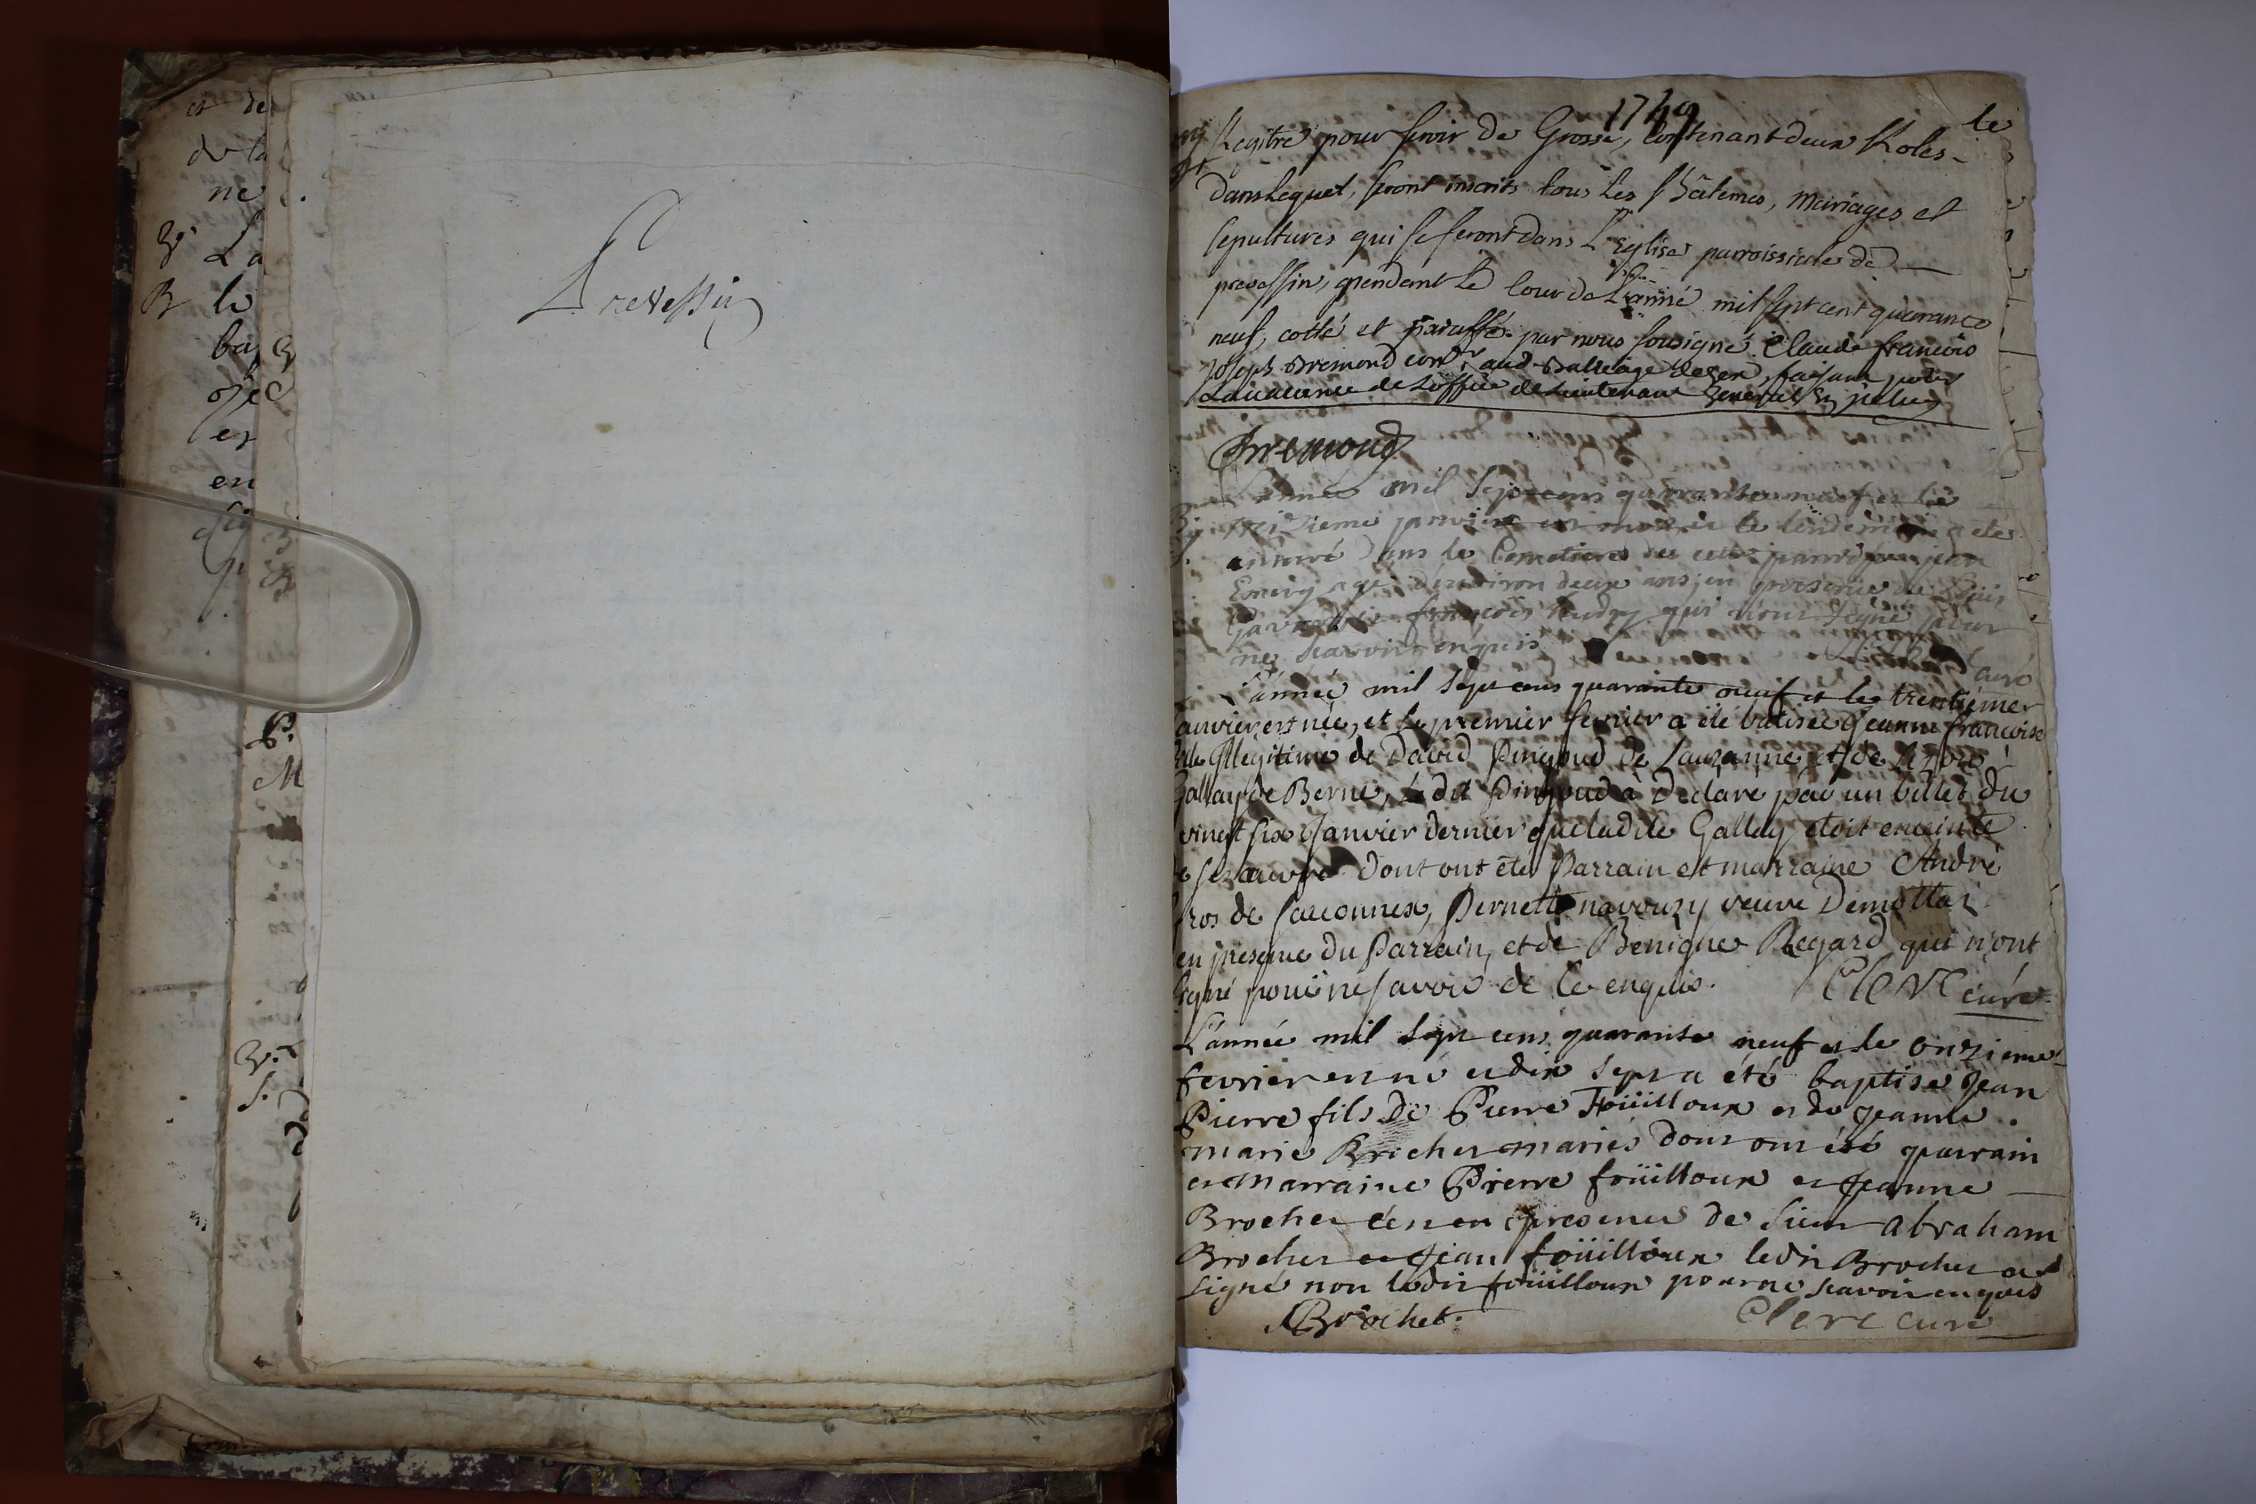 Prevessin
1749
le
Regitre pour servir de Grosse, Contenant deux Roles
dans lequel, seront inscrits tous les Bâtemes, Mariages et
sepultures qui se feront dans L'Eglise parroissiale de
prevessin, pendant le Cour de L'année mil sept cent quarante
neuf, cotté et paraffé par nous sousigné Claude françois
joseph Bremond con.er au d. Balliage de Gex, faisant pour
La vacance de L'office de Lieutenant General En jceluy
Bremond
L'année mil Sept cens quarante neuf et le
janvier est mort et le lendemain a eté
enterré dans le Cemetiere de cette parroisse jean
Emery agé d'environ deux ans, en presence de Louis
et françois qui n'ont signé pour
ne scavoir enquis curé
L'année mil Sept cens quarante neuf et le trentieme
janvier est née, et le premier fevrier a été batisée Jeanne françoise
fille illegitime de David Pingoud de Lauzanne et de
Gallay de Berne, le dit Pingoud à Declaré par un billet du
vinct six Janvier dernier que ladite Gallay étoit enceinte
de ses œuvre Dont ont été Parrain et marraine André
Gros de Sacconnex, Pernette navouzy veuve Demottaz
en presence du Parrain, et de Benigne Regard qui n'ont
signé pour ne savoir de Ce enquis. Clerc curé
L'année mil sept cens quarante neuf et le onzieme
fevrier est né et dix sept a été baptisé Jean
Pierre fils de Pierre Foüilloux et de jeanne
marie Brochet mariés dont ont été parrain
et Marraine Pierre foüilloux et jeanne
Brochet c'est en presence de Sieur abraham
Brochet et Jean foüilloux ledit Brochet a
signé non ledit foüilloux pour ne scavoir enquis
A Brochet. Clerc curé